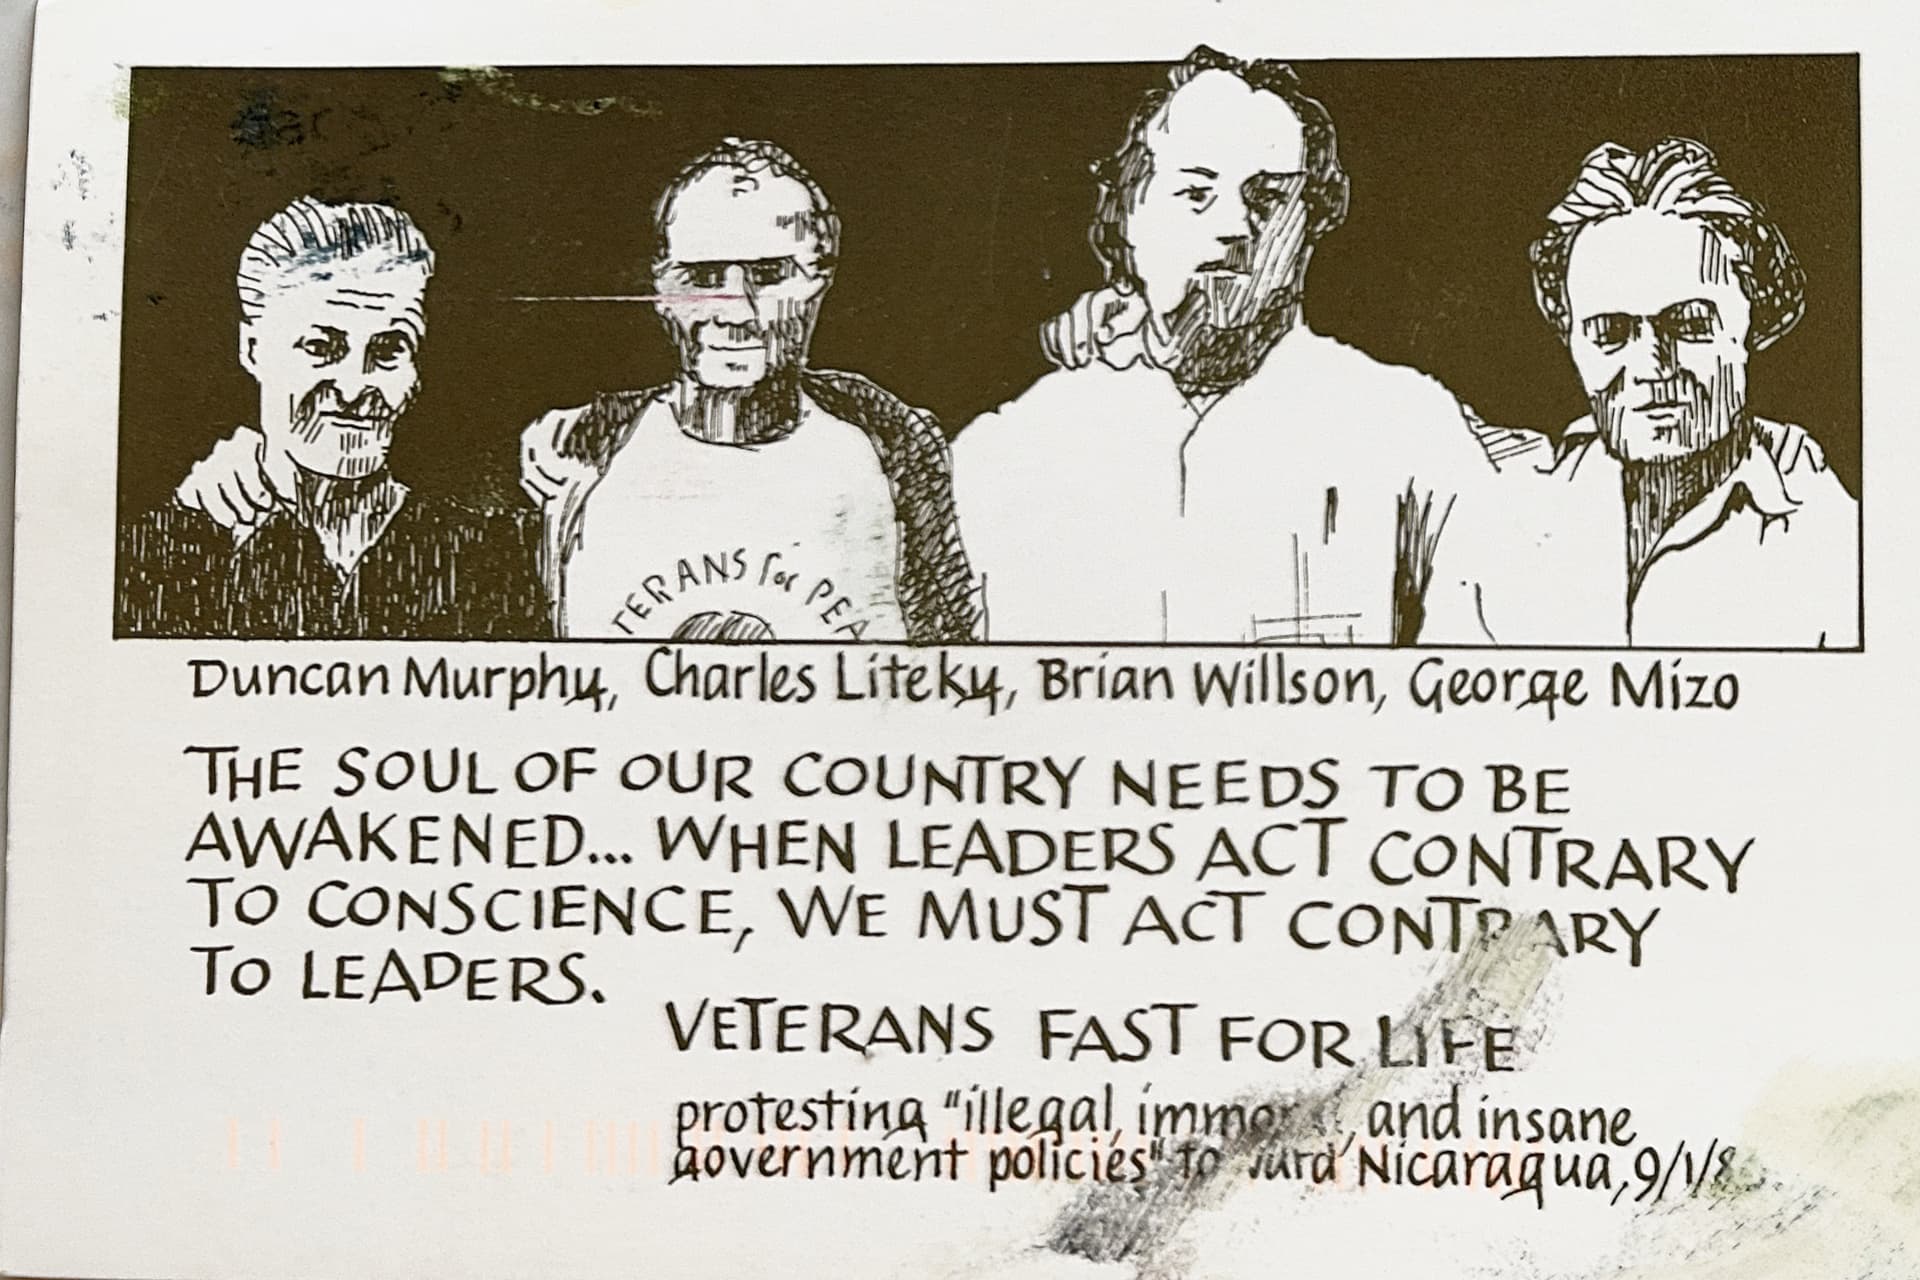 TERANS for PEA
Duncan Murphy, Charles Liteky, Brian Willson, George Mizo
THE SOUL OF OUR COUNTRY NEEDS TO BE
AWAKENED... WHEN LEADERS ACT CONTRARY
TO CONSCIENCE, WE MUST ACT CONTRARY
TO LEADERS.
VETERANS FAST FOR LIFE
protesting "illegal, and insane
government policies" to Nicaragua, 9/1/8